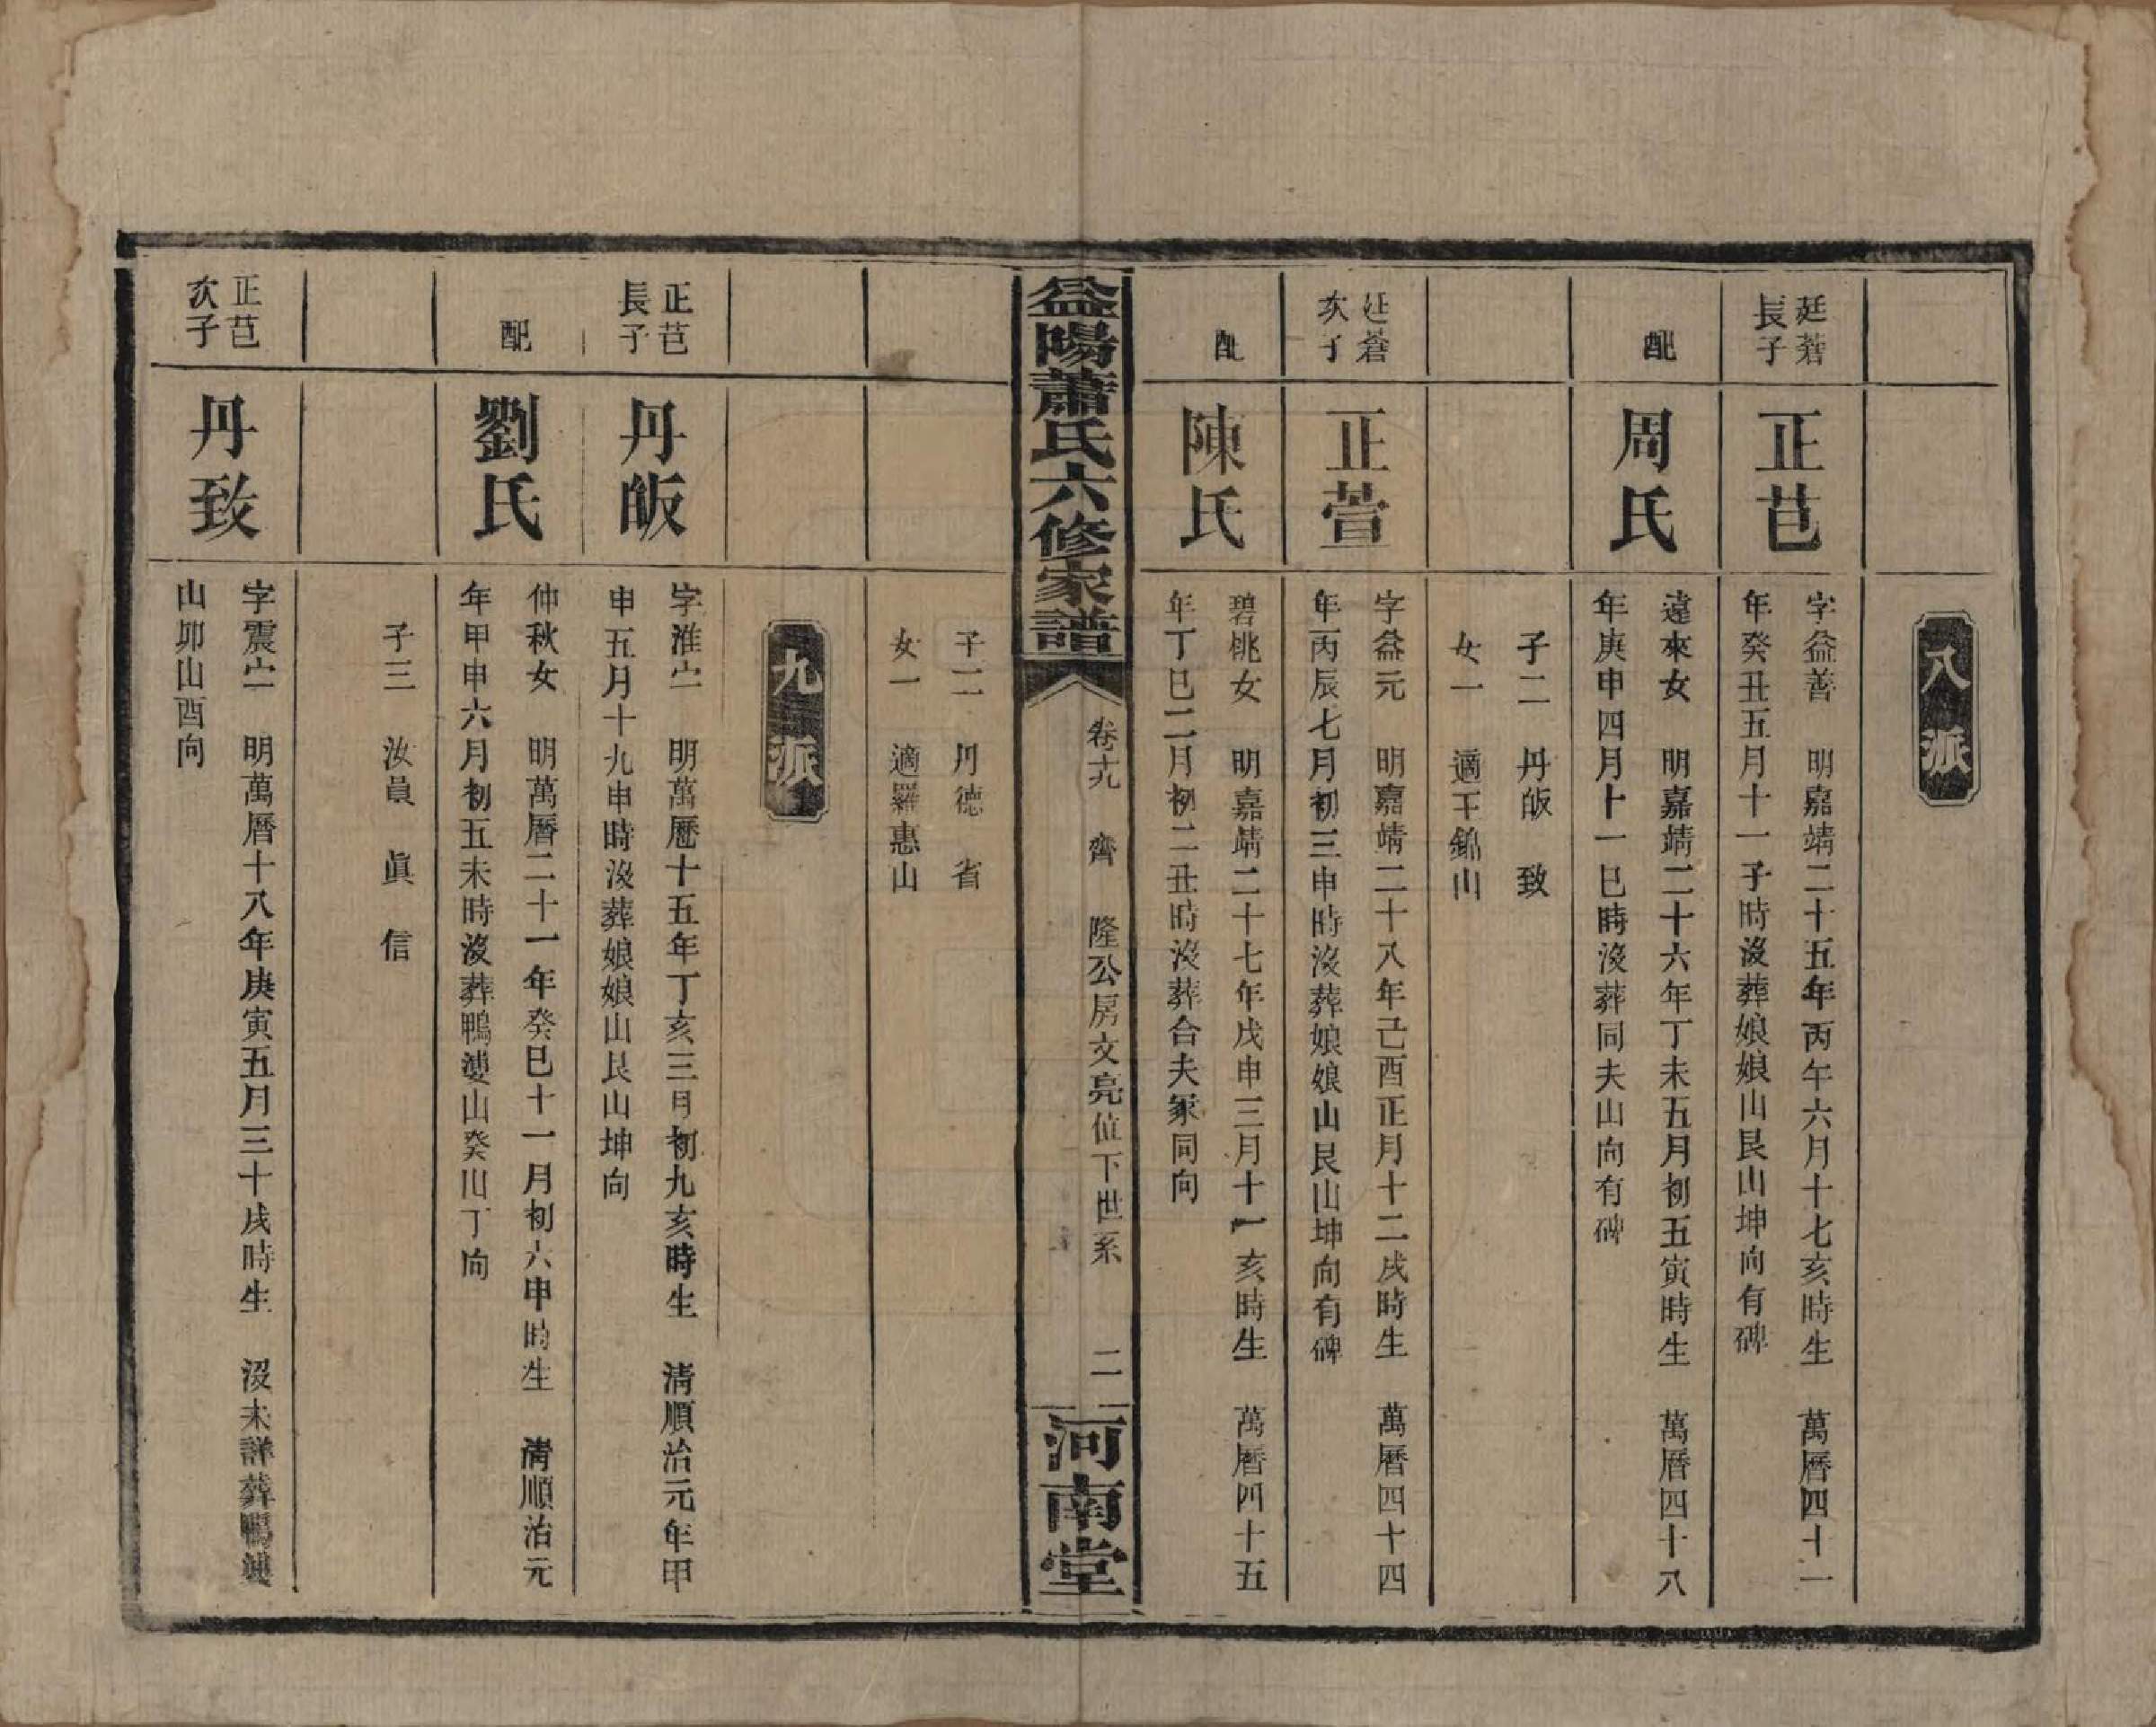 八派
廷蒼
長子
正芑
字益善　明嘉靖二十五年丙午六月十七亥時生　萬曆四十一
年癸丑五月十一子時沒葬娘娘山艮山坤向有碑
配
周氏
遠來女　明嘉靖二十六年丁未五月初五寅時生　萬曆四十八
年庚申四月十一巳時沒葬同夫山向有碑
子二　丹皈　致
女一　適王錦山
廷蒼
次子
正萱
字益元　明嘉靖二十八年己酉正月十二戌時生　萬曆四十四
年丙辰七月初三申時沒葬娘娘山艮山坤向有碑
配
陳氏
碧桃女　明嘉靖二十七年戊申三月十一亥時生　萬曆四十五
年丁巳二月初二丑時沒葬合夫冢同向
益陽蕭氏六修家譜
卷十九　齊　隆公房文亮位下世系　二
河南堂
子二　丹德　省
女一　適羅惠山
九派
正芑
長子
丹皈
字淮宀　明萬曆十五年丁亥三月初九亥時生　清順治元年甲
申五月十九申時沒葬娘娘山艮山坤向
配
劉氏
仲秋女　明萬曆二十一年癸巳十一月初六申時生　清順治元
年甲申六月初五未時沒葬鴨婆山癸山丁向
子三　汝員　眞　信
正芑
次子
丹致
字震宀　明萬曆十八年庚寅五月三十戌時生　沒未詳葬鴨婆
山卯山酉向